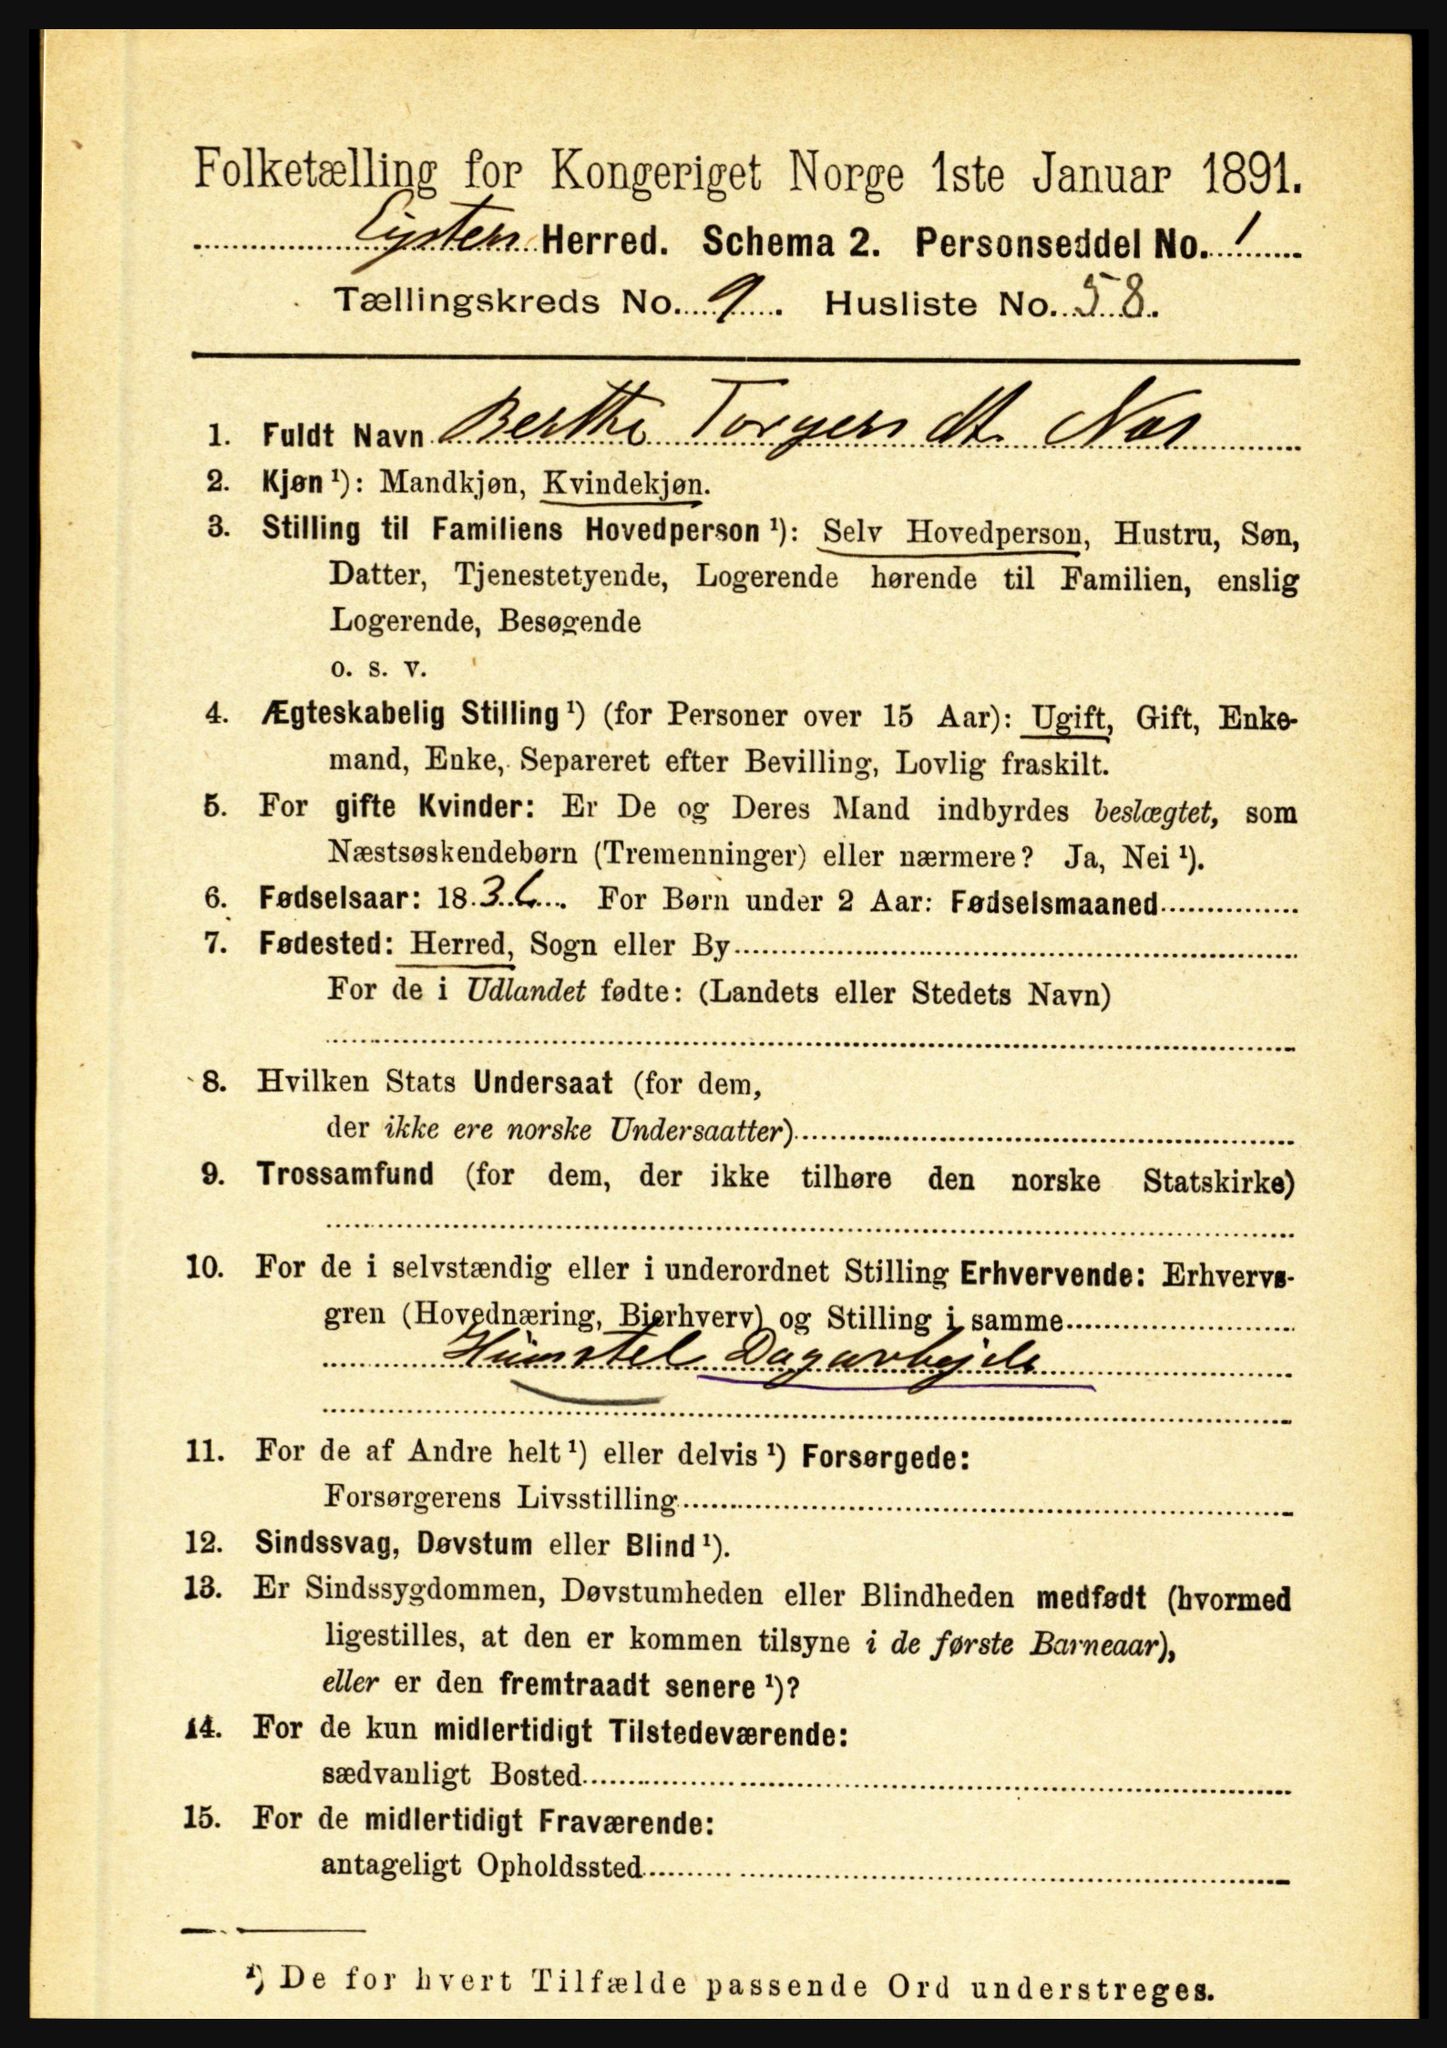 Folketælling for Kongeriget Norge 1ste Januar 1891.
Lyster Herred. Schema 2. Personseddel No. 1
Tællingskreds No. 9. Husliste No. 58.
1. Fuldt Navn Berthe Torgersdt. Nes
2. Kjøn ¹): Mandkjøn, Kvindekjøn.
3. Stilling til Familiens Hovedperson ¹): Selv Hovedperson, Hustru, Søn,
Datter, Tjenestetyende, Logerende hørende til Familien, enslig
Logerende, Besøgende
o. s. v.
4. Ægteskabelig Stilling ¹) (for Personer over 15 Aar): Ugift, Gift, Enke-
mand, Enke, Separeret efter Bevilling, Lovlig fraskilt.
5. For gifte Kvinder: Er De og Deres Mand indbyrdes beslægtet, som
Næstsøskendebørn (Tremenninger) eller nærmere? Ja, Nei ¹).
6. Fødselsaar: 1836. For Børn under 2 Aar: Fødselsmaaned
7. Fødested: Herred, Sogn eller By
For de i Udlandet fødte: (Landets eller Stedets Navn)
8. Hvilken Stats Undersaat (for dem,
der ikke ere norske Undersaatter)
9. Trossamfund (for dem, der ikke tilhøre den norske Statskirke)
10. For de i selvstændig eller i underordnet Stilling Erhvervende: Erhvervs-
gren (Hovednæring, Bierhverv) og Stilling i samme
Dagarbejde
11. For de af Andre helt ¹) eller delvis ¹) Forsørgede:
Forsørgerens Livsstilling
12. Sindssvag, Døvstum eller Blind ¹).
13. Er Sindssygdommen, Døvstumheden eller Blindheden medfødt (hvormed
ligestilles, at den er kommen tilsyne i de første Barneaar),
eller er den fremtraadt senere ¹)?
14. For de kun midlertidigt Tilstedeværende:
sædvanligt Bosted
15. For de midlertidigt Fraværende:
antageligt Opholdssted
¹) De for hvert Tilfælde passende Ord understreges.